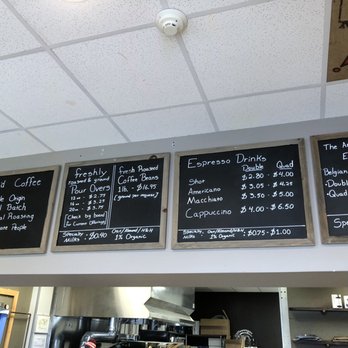 d Coffee
le Origin
l Batch
al Roasting
ome People
freshly
Roasted & ground
Pour Overs
12 oz - $2.75
16 oz - $3.25
20 oz - $3.75
[Check by board
for Current Offerings]
Specialty Milks - $0.90
fresh Roasted
Coffee Beans
1 lb. - $16.95
[ground per request]
2% Organic
Espresso Drinks
Double Quad
Shot $2.80 - $4.00
Americano $3.05 - $4.25
Macchiato $3.50 - $5.00
Cappuccino $4.00 - $6.50
Specialty Milks
2% Organic
$0.75 - $1.00
The A
E
Belgian
-Doubl
-Quad